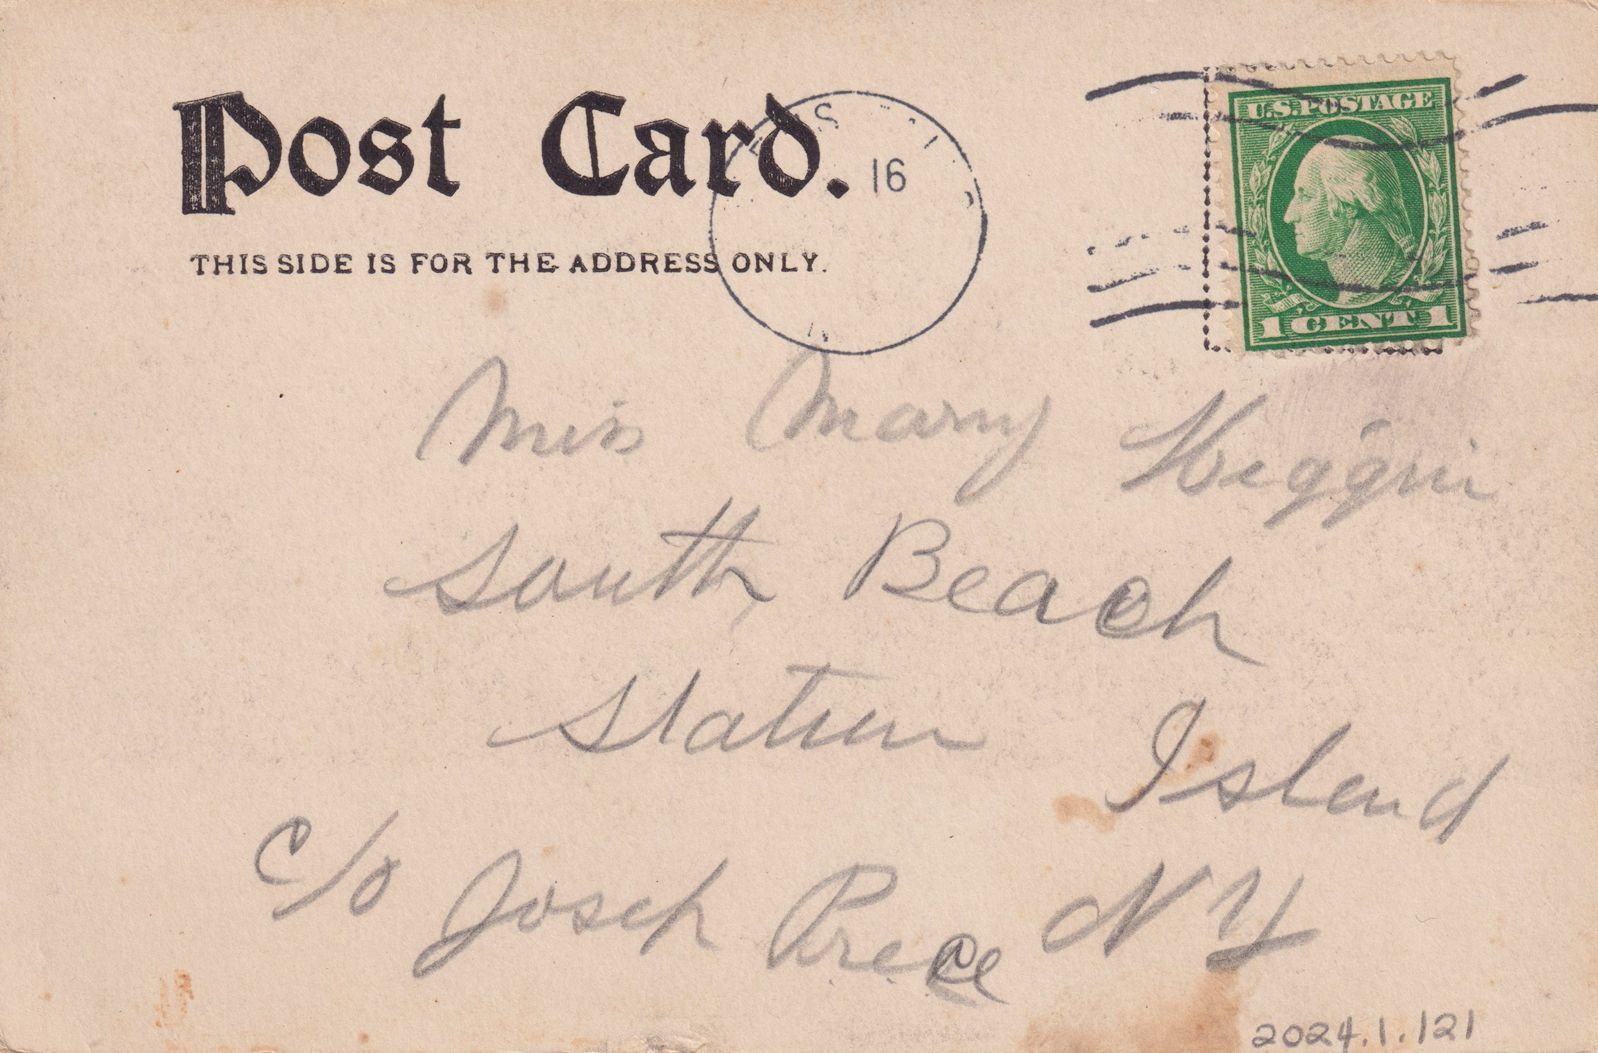 Post Card.
THIS SIDE IS FOR THE ADDRESS ONLY.
16
U.S. POSTAGE
1 CENT 1
Miss Mary Higgin
South Beach
Staten Island
c/o Joseph NY
2024.1.121